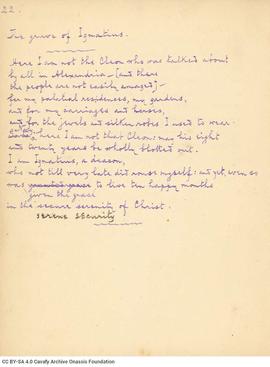 22.
The grave of Ignatius.
Here I am not the Cleon who was talked about
by all in Alexandria — (and there
the people are not easily amazed) —
for my palatial residences, my gardens,
and for my carriages and horses,
and for the jewels and silken robes I used to wear.
here I am not that Cleon: may his eight
and twenty years be wholly blotted out.
I am Ignatius, a deacon,
who not till very late did rouse myself: and yet, even so
was to live ten happy months
given the grace
in the secure serenity of Christ.
serene security
CC BY-SA 4.0 Cavafy Archive Onassis Foundation